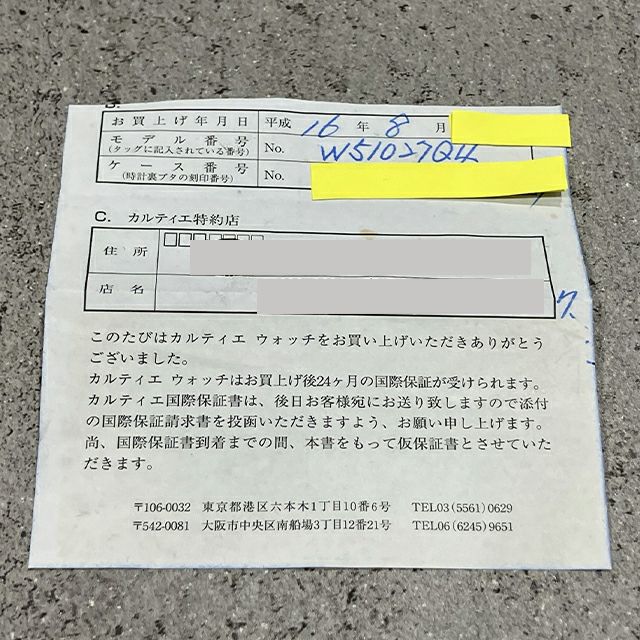 お買上げ年月日 平成 16 年 8 月
モデル番号 No. W51027Q4
(タッグに記入されている番号)
ケース番号 No.
(時計裏ブタの刻印番号)
C. カルティエ特約店
住所
店名
このたびはカルティエ ウォッチをお買い上げいただきありがとう
ございました。
カルティエ ウォッチはお買上げ後24ヶ月の国際保証が受けられます。
カルティエ国際保証書は、後日お客様宛にお送り致しますので添付
の国際保証請求書を投函いただきますよう、お願い申し上げます。
尚、国際保証書到着までの間、本書をもって仮保証書とさせていた
だきます。
〒106-0032 東京都港区六本木1丁目10番6号 TEL03(5561)0629
〒542-0081 大阪市中央区南船場3丁目12番21号 TEL06(6245)9651